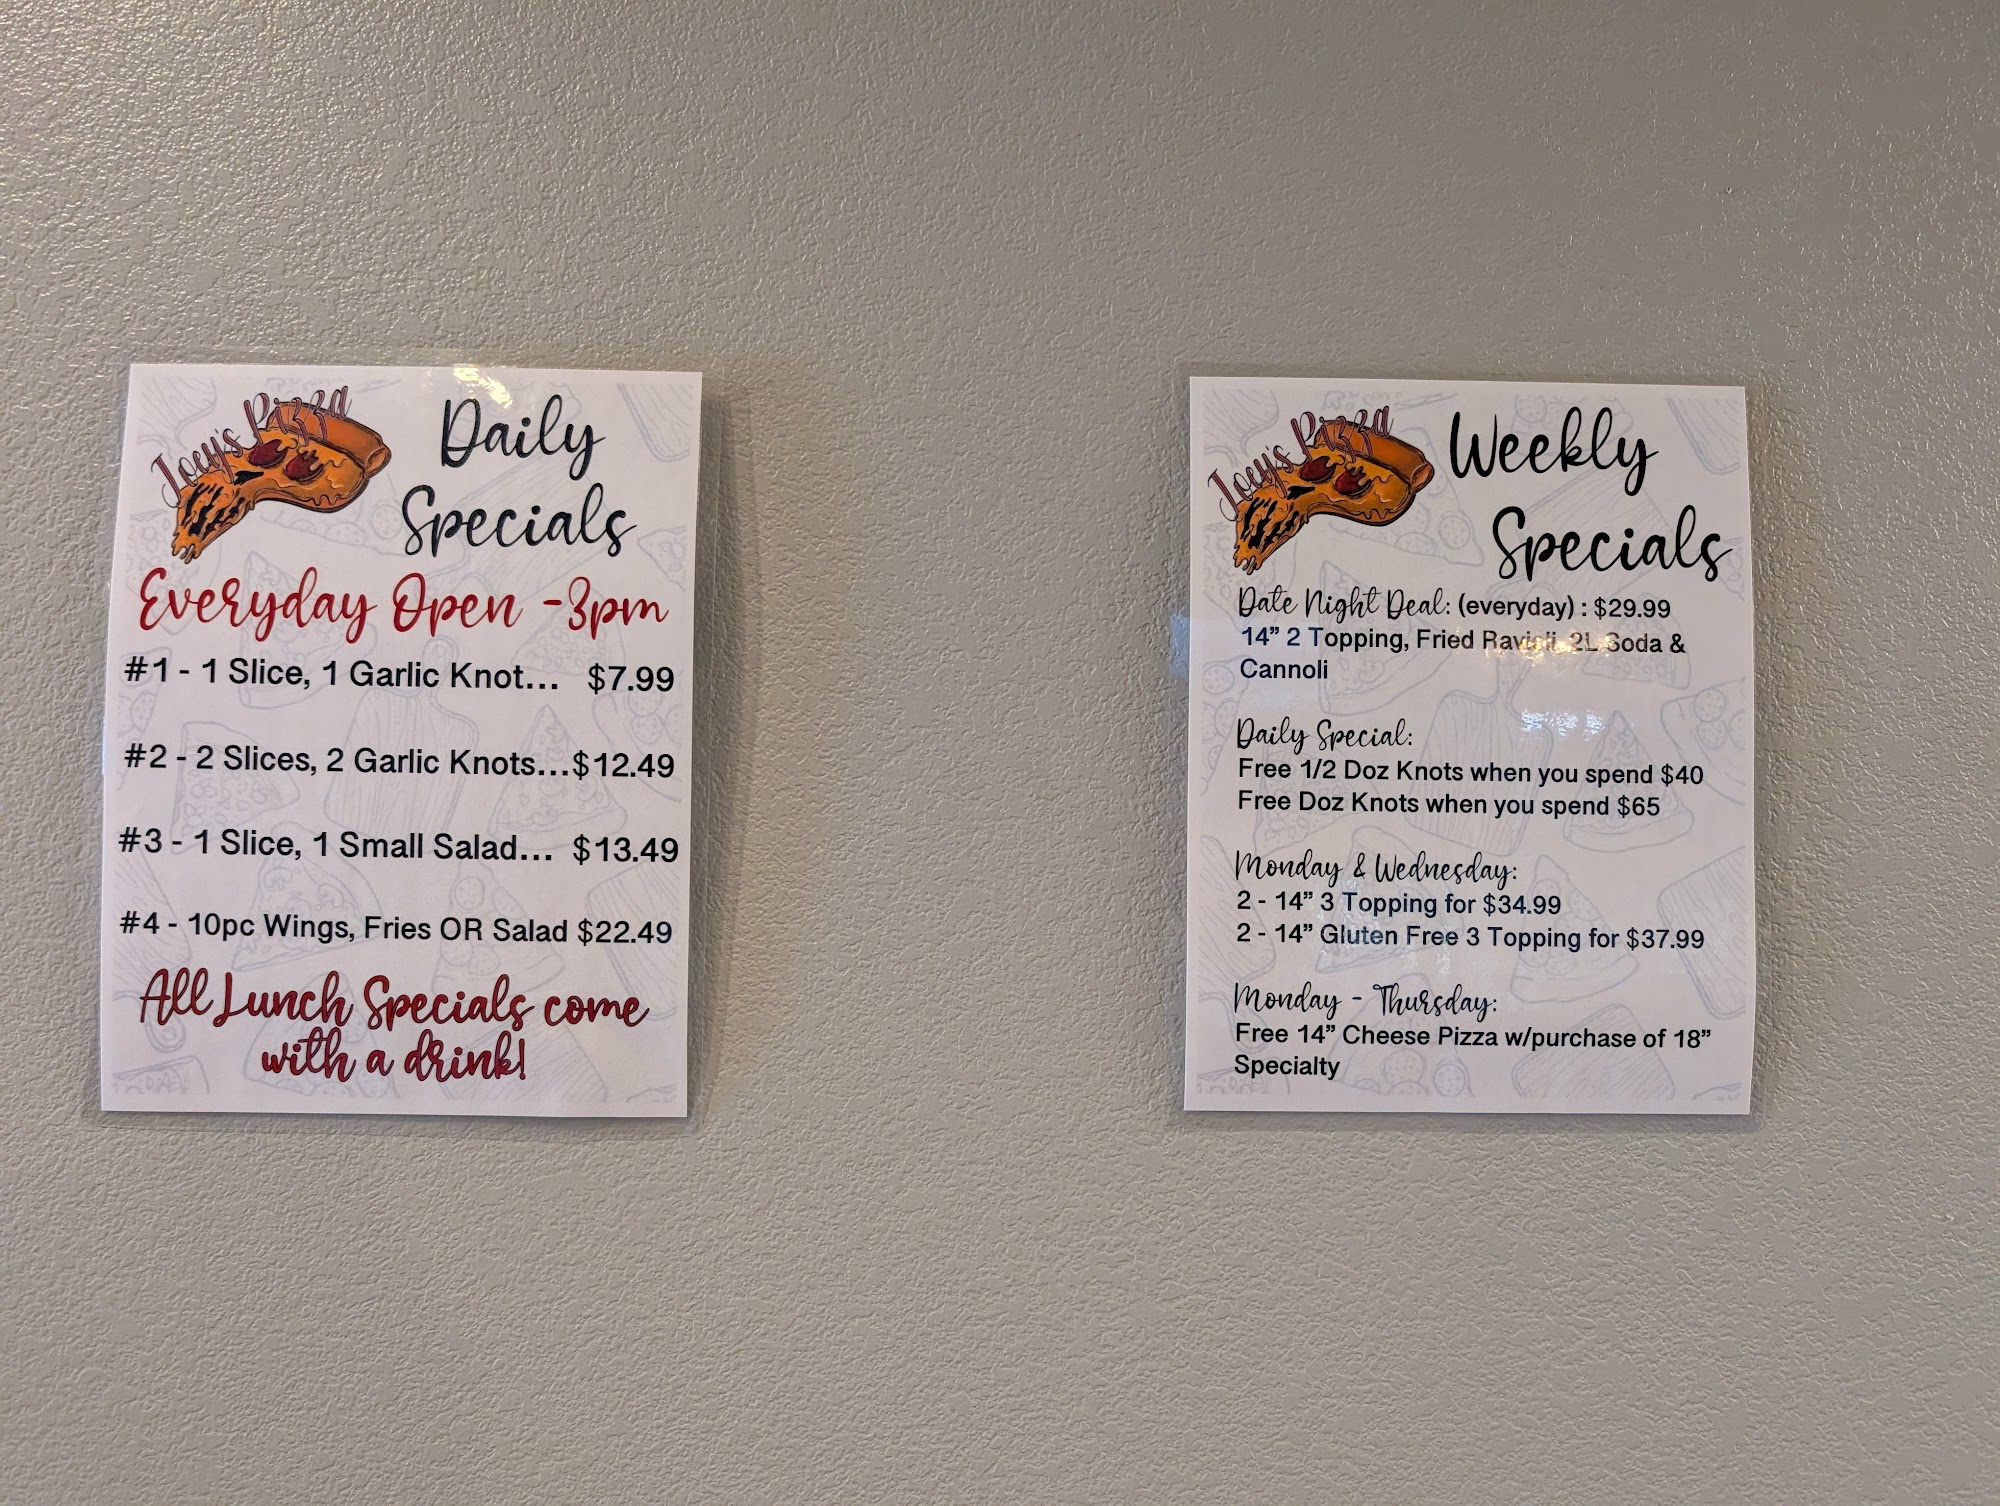 Joey's Pizza
Daily
Specials
Everyday Open -3pm
#1 - 1 Slice, 1 Garlic Knot... $7.99
#2 - 2 Slices, 2 Garlic Knots...$12.49
#3 - 1 Slice, 1 Small Salad... $13.49
#4 - 10pc Wings, Fries OR Salad $22.49
All Lunch Specials come
with a drink!
Joey's Pizza
Weekly
Specials
Date Night Deal: (everyday) : $29.99
14” 2 Topping, Fried Ravioli, 2L Soda &
Cannoli
Daily Special:
Free 1/2 Doz Knots when you spend $40
Free Doz Knots when you spend $65
Monday & Wednesday:
2 - 14” 3 Topping for $34.99
2 - 14” Gluten Free 3 Topping for $37.99
Monday - Thursday:
Free 14” Cheese Pizza w/purchase of 18”
Specialty